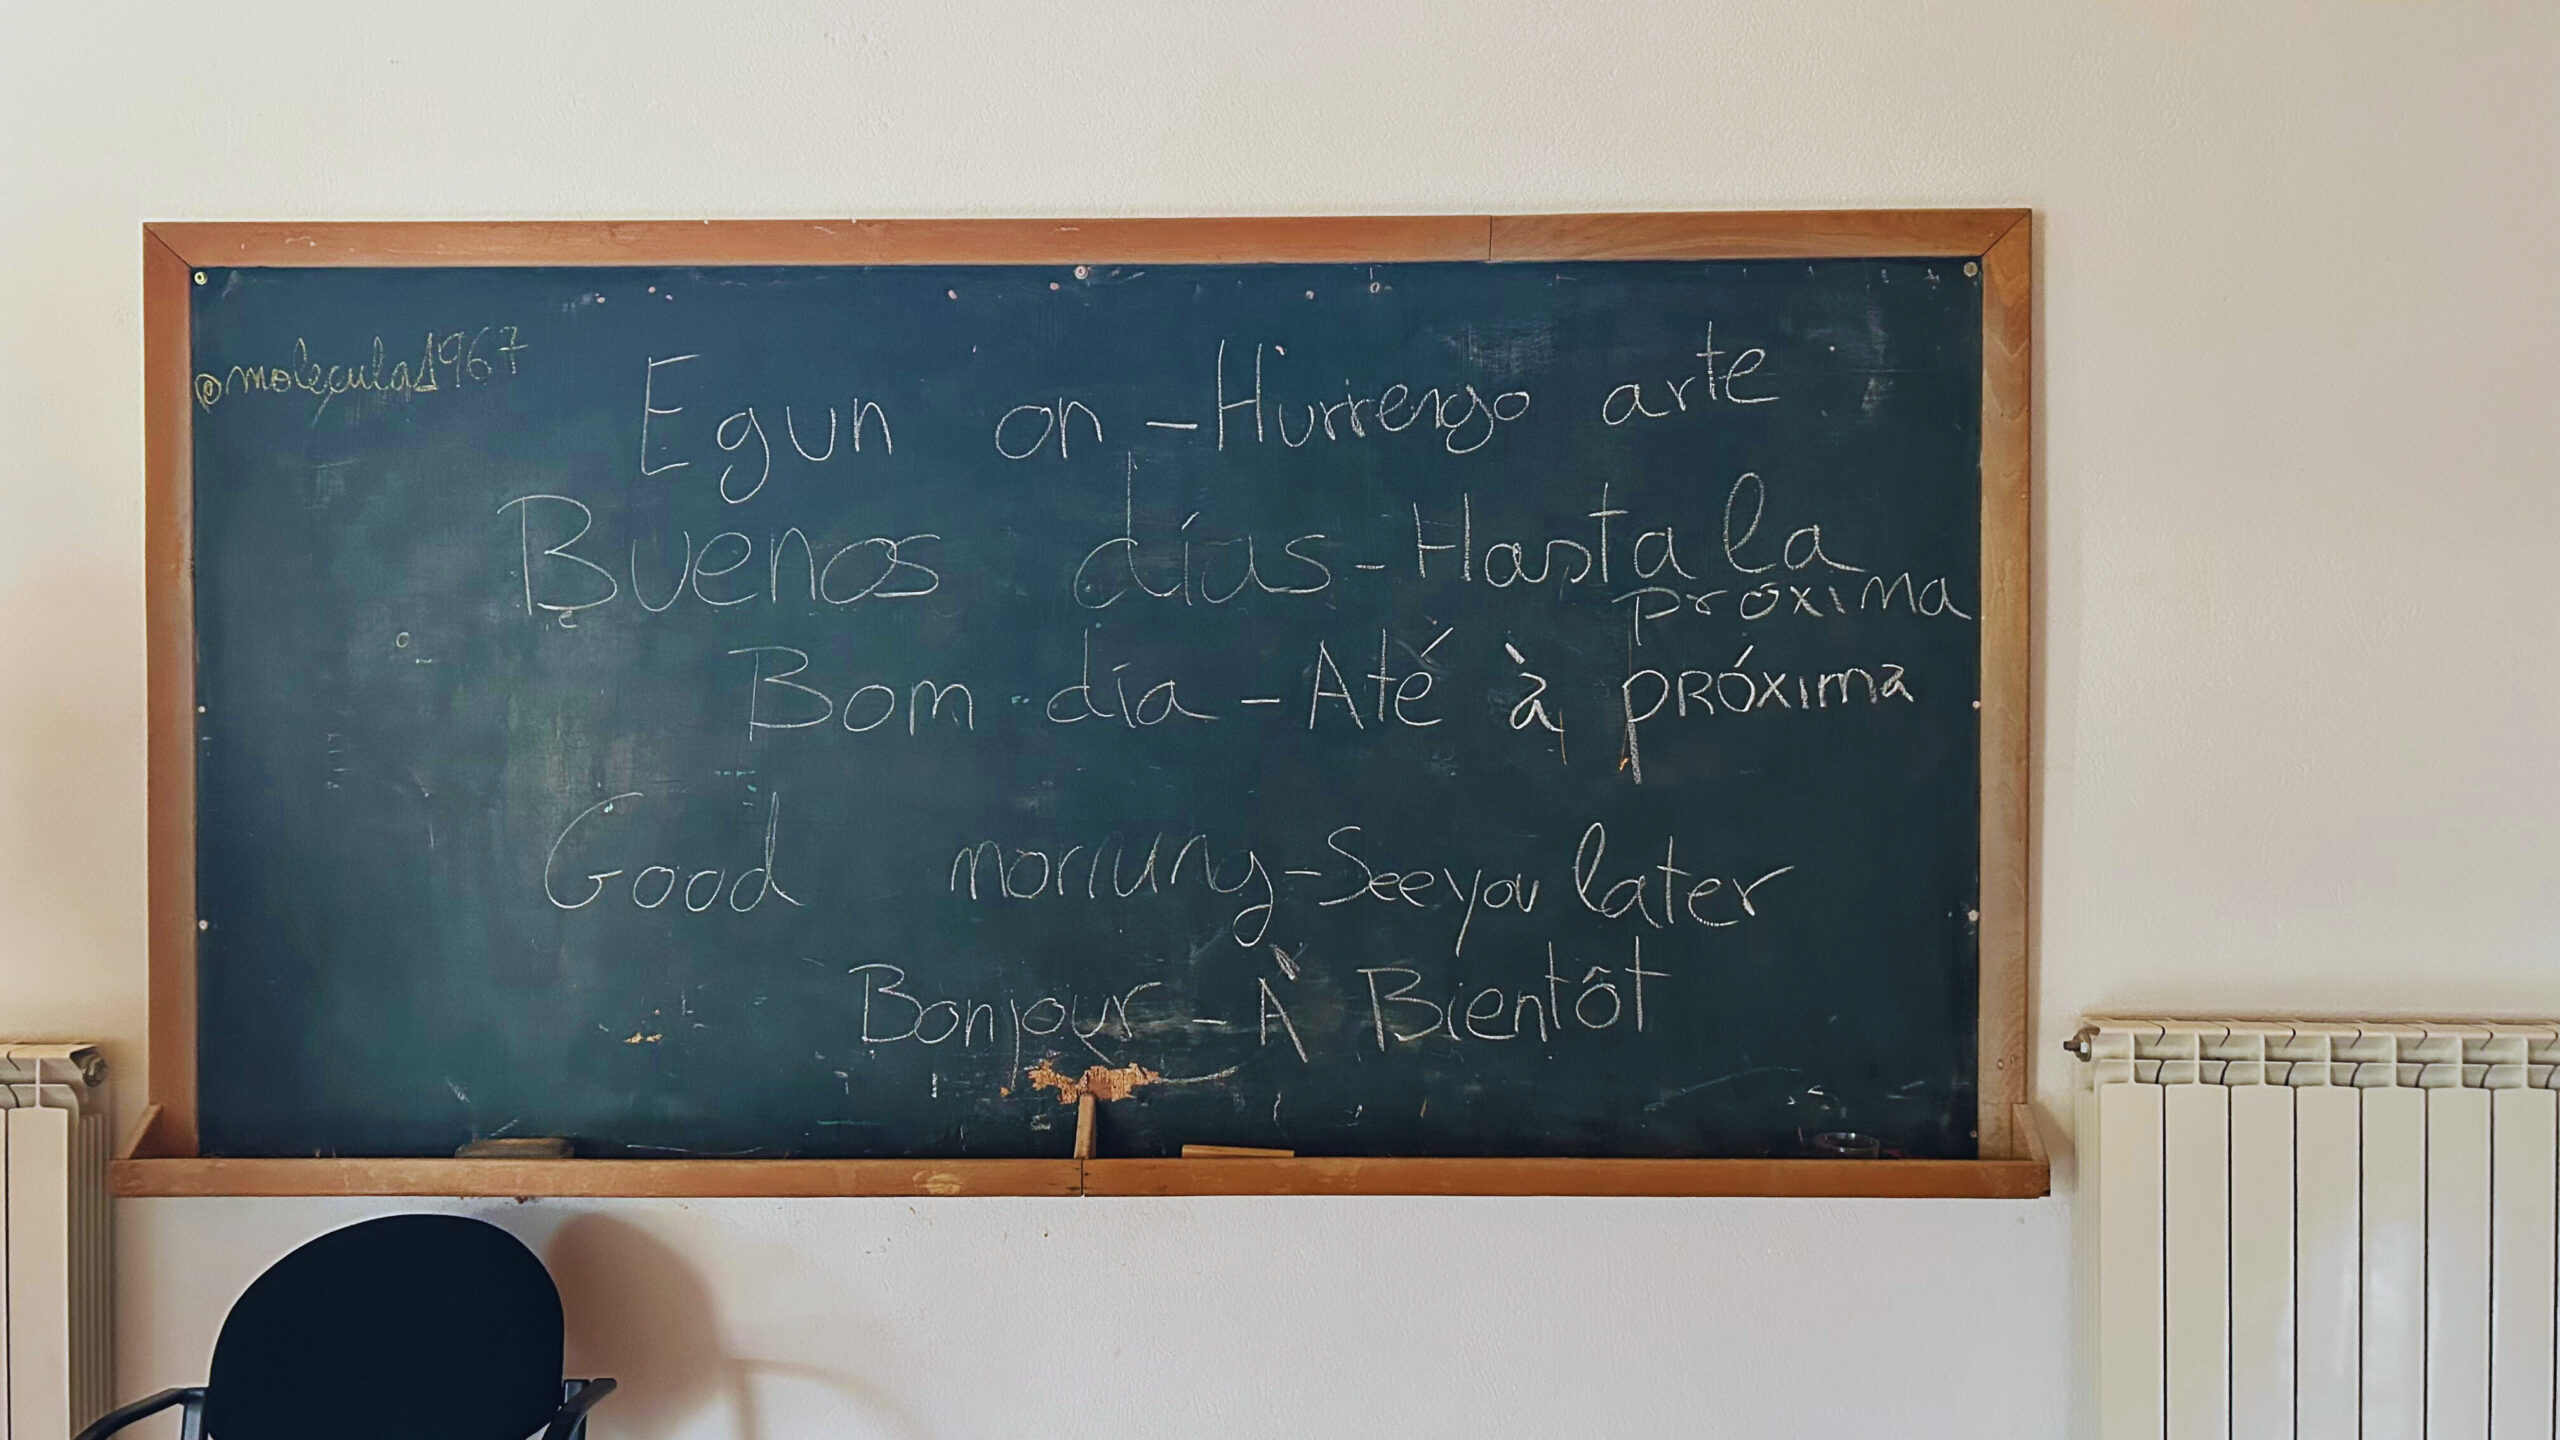 @molecula1967
Egun on - Hurrengo arte
Buenos días - Hasta la
próxima
Bom dia - Até à próxima
Good morning - See you later
Bonjour - À Bientôt